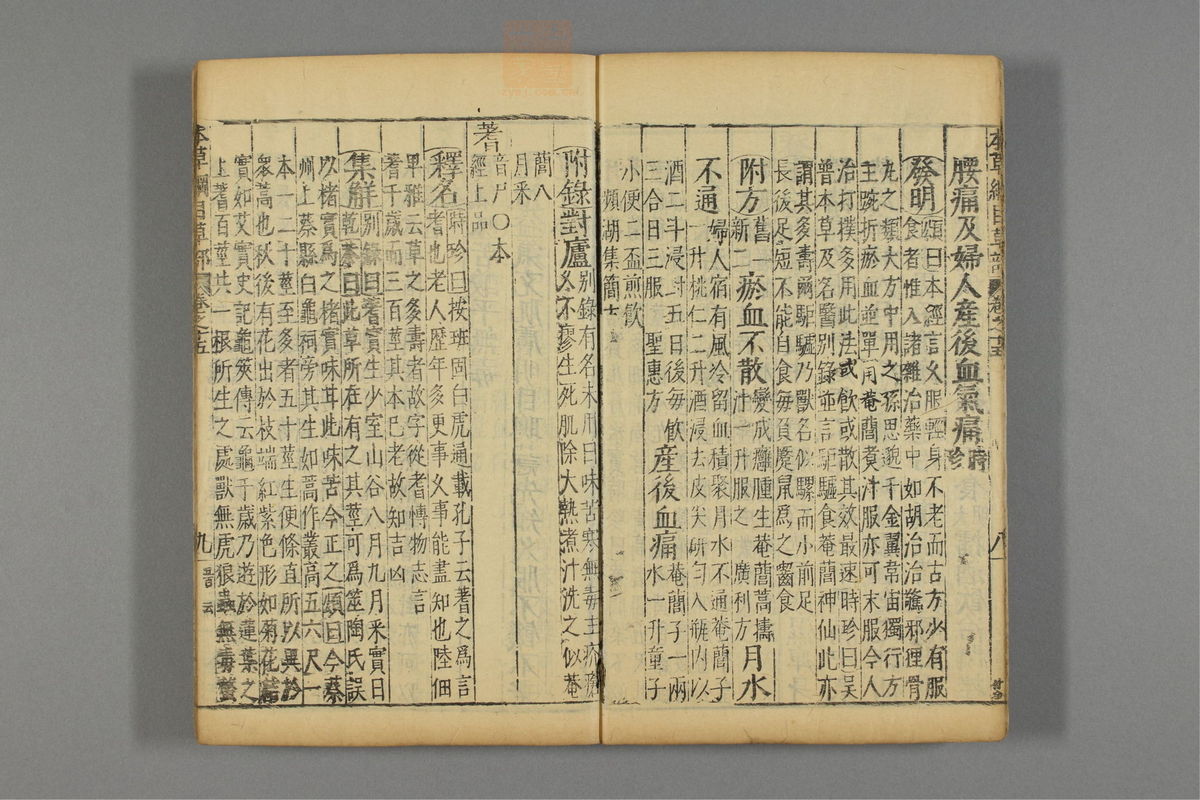 腰痛及婦人產後血氣痛時珍
發明頌曰本經言久服輕身不老而古方少有服
食者惟入諸雜治藥中如胡治治驚邪狸骨
丸之類大方中用之孫思邈千金翼韋宙獨行方
主踠折瘀血並單用菴䕡煑汁服亦可末服今人
治打撲多用此法或飲或散其效最速時珍曰吴
普本草及名醫別錄並言駏驉食菴䕡神仙此亦
謂其多壽爾駏驉乃獸名似騾而小前足
長後足短不能自食每負蹷鼠爲之齧食
附方舊一新二瘀血不散變成癰腫生菴䕡蒿擣汁一升服之廣利方月水
不通婦人宿有風冷留血積聚月水不通菴䕡子一升桃仁二升酒浸去皮尖研匀入瓶内以
酒二斗浸封五日後每飲三合日三服聖惠方產後血痛菴䕡子一兩水一升童子
小便二盃煎飲
瀕湖集簡方
附錄對廬别錄有名未用曰味苦寒無毒主疥瘡久不瘳生死肌除大熱煮汁洗之似菴
䕡八
月采
蓍
音尸○本
經上品
釋名時珍曰按班固白虎通載孔子云蓍之爲言
耆也老人歷年多更事久事能盡知也陸佃
埤雅云草之多壽者故字從耆博物志言
蓍千歳而三百莖其本已老故知吉凶
集解别錄曰蓍實生少室山谷八月九月采實日
乾恭曰此草所在有之其莖可爲筮陶氏誤
以楮實爲之楮實味耳此味苦今正之頌曰今蔡
州上蔡縣白龜祠旁其生如蒿作叢高五六尺一
本一二十莖至多者五十莖生便條直所以異於
衆蒿也秋後有花出於枝端紅紫色形如菊花結
實如艾實史記龜筴傳云龜千歳乃遊於蓮葉之
上蓍百莖共一根所生之處獸無虎狼蟲無毒螫
本草綱目草部
卷之十五
八
本草綱目草部
卷之十五
九